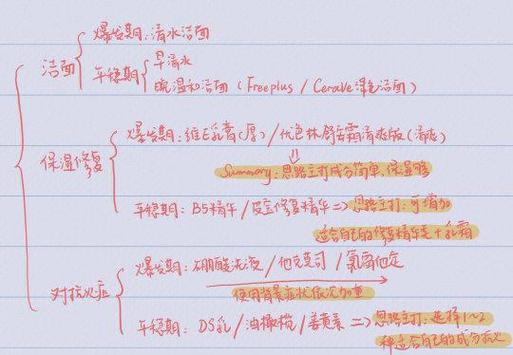 爆发期:清水洁面
洁面
平稳期
早清水
晚温和洁面(Freeplus / CeraVe绿色洁面)
爆发期:维E乳膏(厚)/优色林舒安霜清爽版(清爽)
保湿修复
Summary:思路主打成分简单,保湿够
平稳期:B5精华/皮立修复精华⇒思路主打:可增加
适合自己的修复精华类+乳霜
爆发期:硼酸洗液/他克莫司/氯雷他定
对抗炎症
使用背景症状依次加重
平稳期:DS乳/油橄榄/姜黄素⇒思路主打:选择1~2
种适合自己的成分抗炎